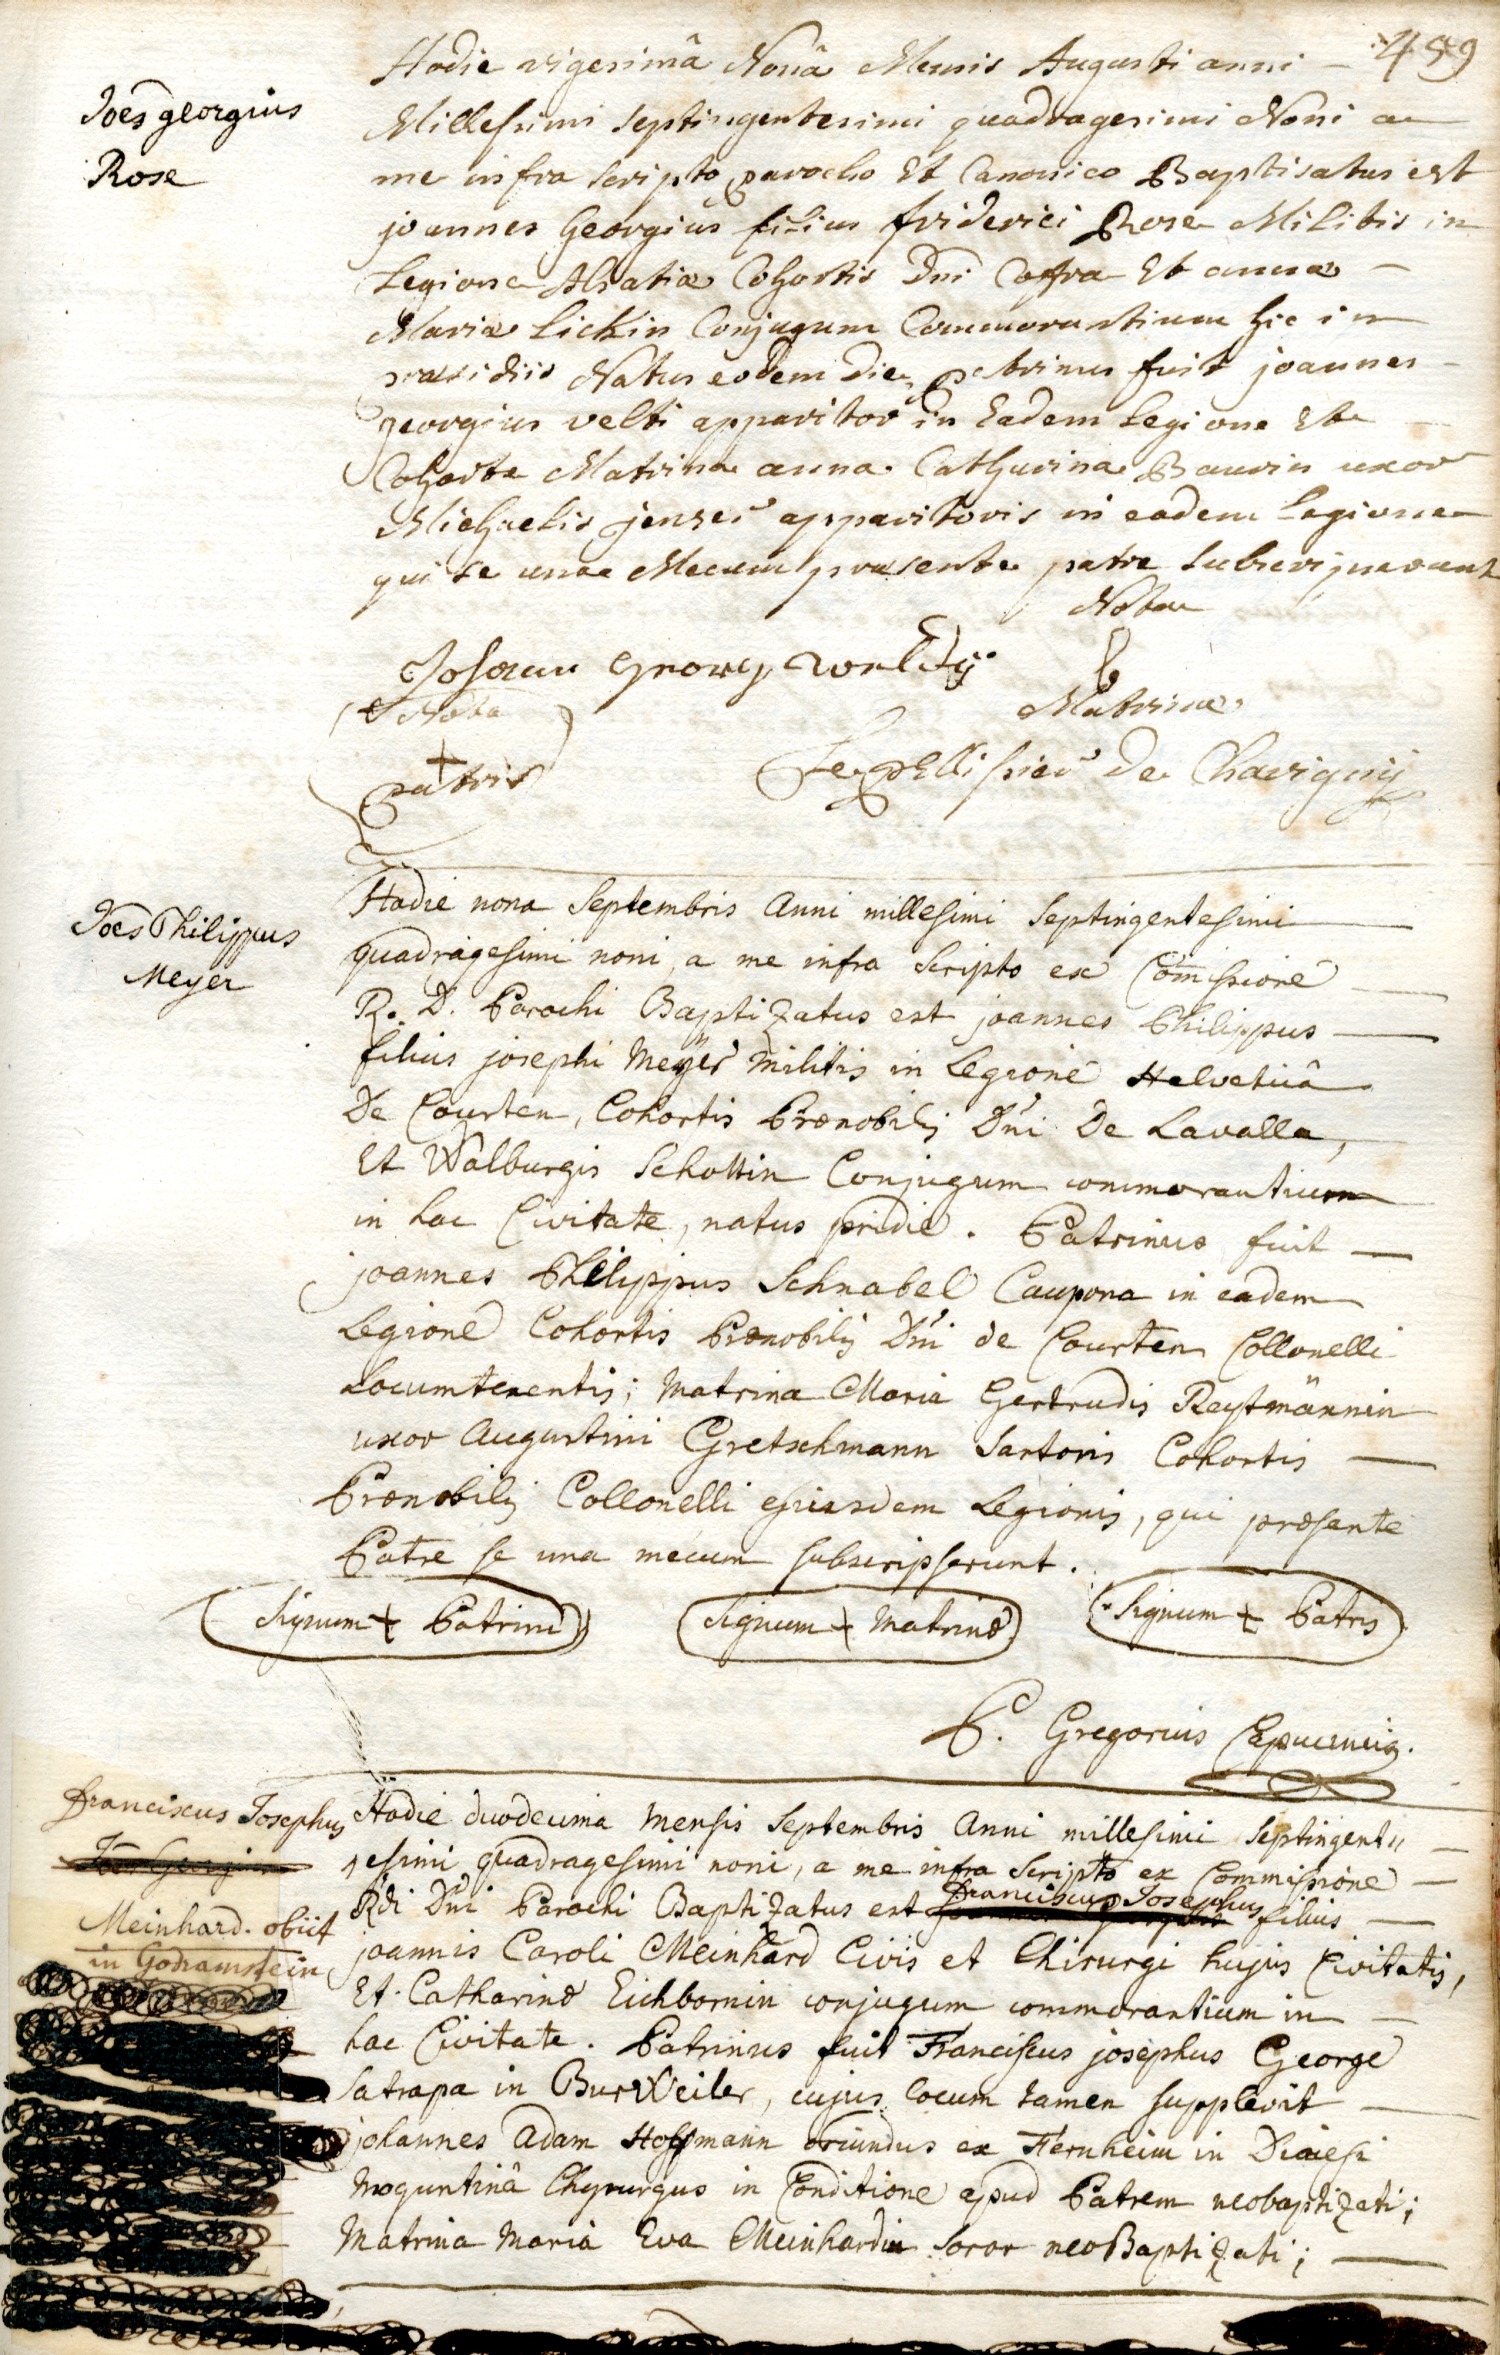 459
Joes georgius
Rose
Hodie vigesimâ Nonâ Mensis Augusti anni –
Millesimi septingentesimi quadragesimi Noni a
me infra scripto parocho Et Canonico Baptisatus est
joannes Georgius filius friderici Rose Militis in
Legione Alsatiæ Cohortis Dni Et annæ –
Mariæ Lickin Conjugum Commorantium hic in
præsidiis Natus eodem die, patrinus fuit joannes –
georgius velti apparitor in Eadem Legione Et
Cohorte Matrina anna Catharina Baurin uxor
Michaelis apparitoris in eadem Legione
qui se una Mecum præsente patre subscripserunt
Nota
Johann Georg
Nota
Matrinæ
+
patris
Le pellissier de Chavigny
Joes Philippus
Meyer
Hodie nona Septembris Anni millesimi Septingentesimi
quadragesimi noni, a me infra scripto ex Comissione
R. D. Parochi Baptizatus est joannes Philippus
filius josephi Meyer Militis in Legione Helveticâ
De Courten, Cohortis Prænobilis Dni De Lavalla,
Et Walburgis Schottin Conjugum commorantium
in hac Civitate, natus pridie. Patrinus fuit —
joannes Philippus Schnabel Caupona in eadem
Legione Cohortis Prænobilis Dni de Courten Collonelli
Locumtenentis; Matrina Maria Gertrudis Reytmännin
uxor Augustini Gretschmann Sartoris Cohortis —
Prænobilis Collonelli ejusdem Legionis, qui præsente
Patre se una mecum subscripserunt.
Signum + Patrini
Signum + Matrinæ
Signum + Patris
P. Gregorius Capucinus.
Franciscus Josephus
Meinhard. obiit
in Godramstein
Hodie duodecima Mensis Septembris Anni millesimi Septingent„
„esimi quadragesimi noni, a me infra scripto ex Commissione —
Rdi Dni Parochi Baptizatus est Franciscus Josephus filius —
joannis Caroli Meinhard Civis et Chirurgi hujus Civitatis,
Et Catharinæ Eichbornin conjugum commorantium in —
hac Civitate. Patrinus fuit Franciscus josephus George
Satrapa in BurWeiler, cujus locum tamen supplevit —
johannes Adam Hoffmann oriundus ex Fernheim in Diœcesi
Moguntinâ Chyrurgus in Conditione apud Patrem neobaptizati;
Matrina Maria Eva Meinhardin soror neoBaptizati; —